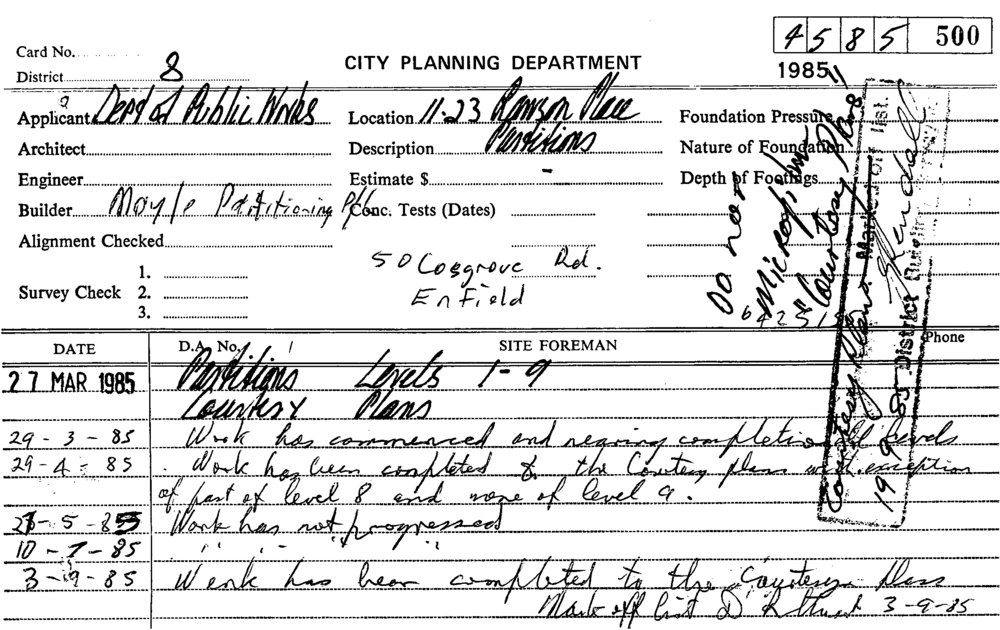 4 5 8 5 500
Card No.
District 8
CITY PLANNING DEPARTMENT
1985
Applicant Dept of Public Works
Location 11-23 Rawson Place
Foundation Pressure
Architect
Description Partitions
Nature of Foundation
Engineer
Estimate $ -
Depth of Footings
Builder Mayle Partitioning P/L
Conc. Tests (Dates)
Alignment Checked
50 Cosgrove Rd.
Enfield
Survey Check
1.
2.
3.
Do not
Microfilm
"Courtesy Plans"
Courtesy Plans Marked Off list.
District Build
DATE
D.A. No.
SITE FOREMAN
Phone
27 MAR 1985 Partitions Levels 1-9
Courtesy Plans
29-3-85 Work has commenced and nearing completion all levels
29-4-85 Work has been completed to the Courtesy plans with exception
of part of level 8 and none of level 9.
-5-85 Work has not progressed
10-7-85 " " " " "
3-9-85 Work has been completed to the Courtesy plans
Mark off list 3-9-85